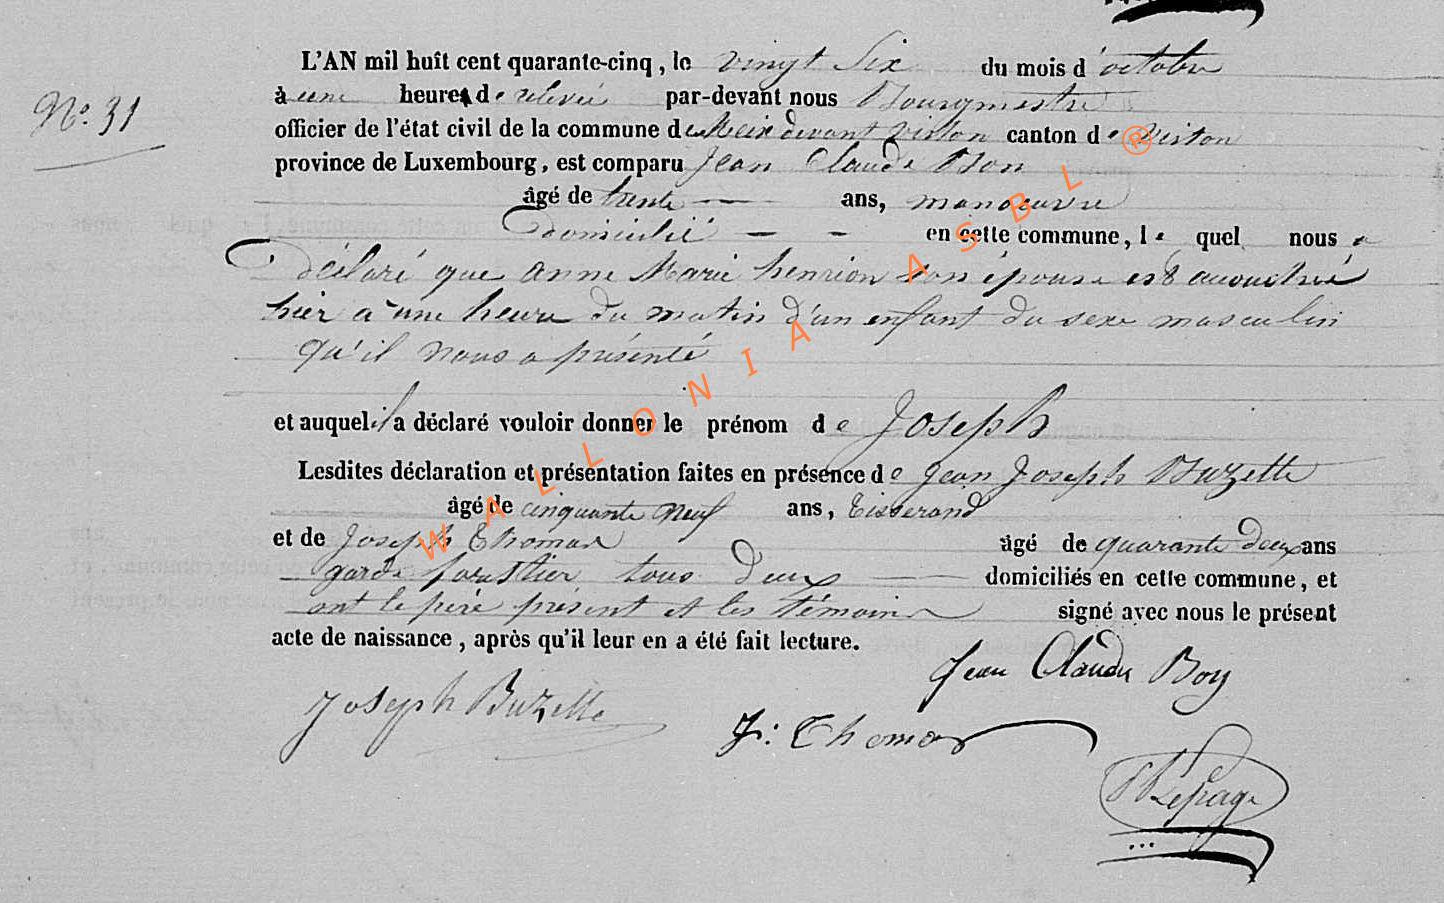 L'AN mil huit cent quarante-cinq, le vingt Six du mois d'octobre
No. 31
à une heure de relevée par-devant nous Bourgmestre
officier de l'état civil de la commune de Meix devant Virton canton de Virton
province de Luxembourg, est comparu Jean Claude Bon
âgé de trente ans, manoeuvre
Domicilié en cette commune, le quel nous a
Déclaré que anne Marie henrion son épouse est accouchée
hier à une heure du matin d'un enfant du sexe masculin
qu'il nous a présenté
et auquel il a déclaré vouloir donner le prénom de Joseph
Lesdites déclaration et présentation faites en présence de Jean Joseph Buzette
âgé de cinquante neuf ans, tisserand
et de Joseph Thomas âgé de quarante deux ans
garde forestier tous deux domiciliés en cette commune, et
ont le père présent et les témoins signé avec nous le présent
acte de naissance, après qu'il leur en a été fait lecture.
Jean Claude Bon
Joseph Buzette
J: Thomas
Lepage
WALLONIA ASBL ®